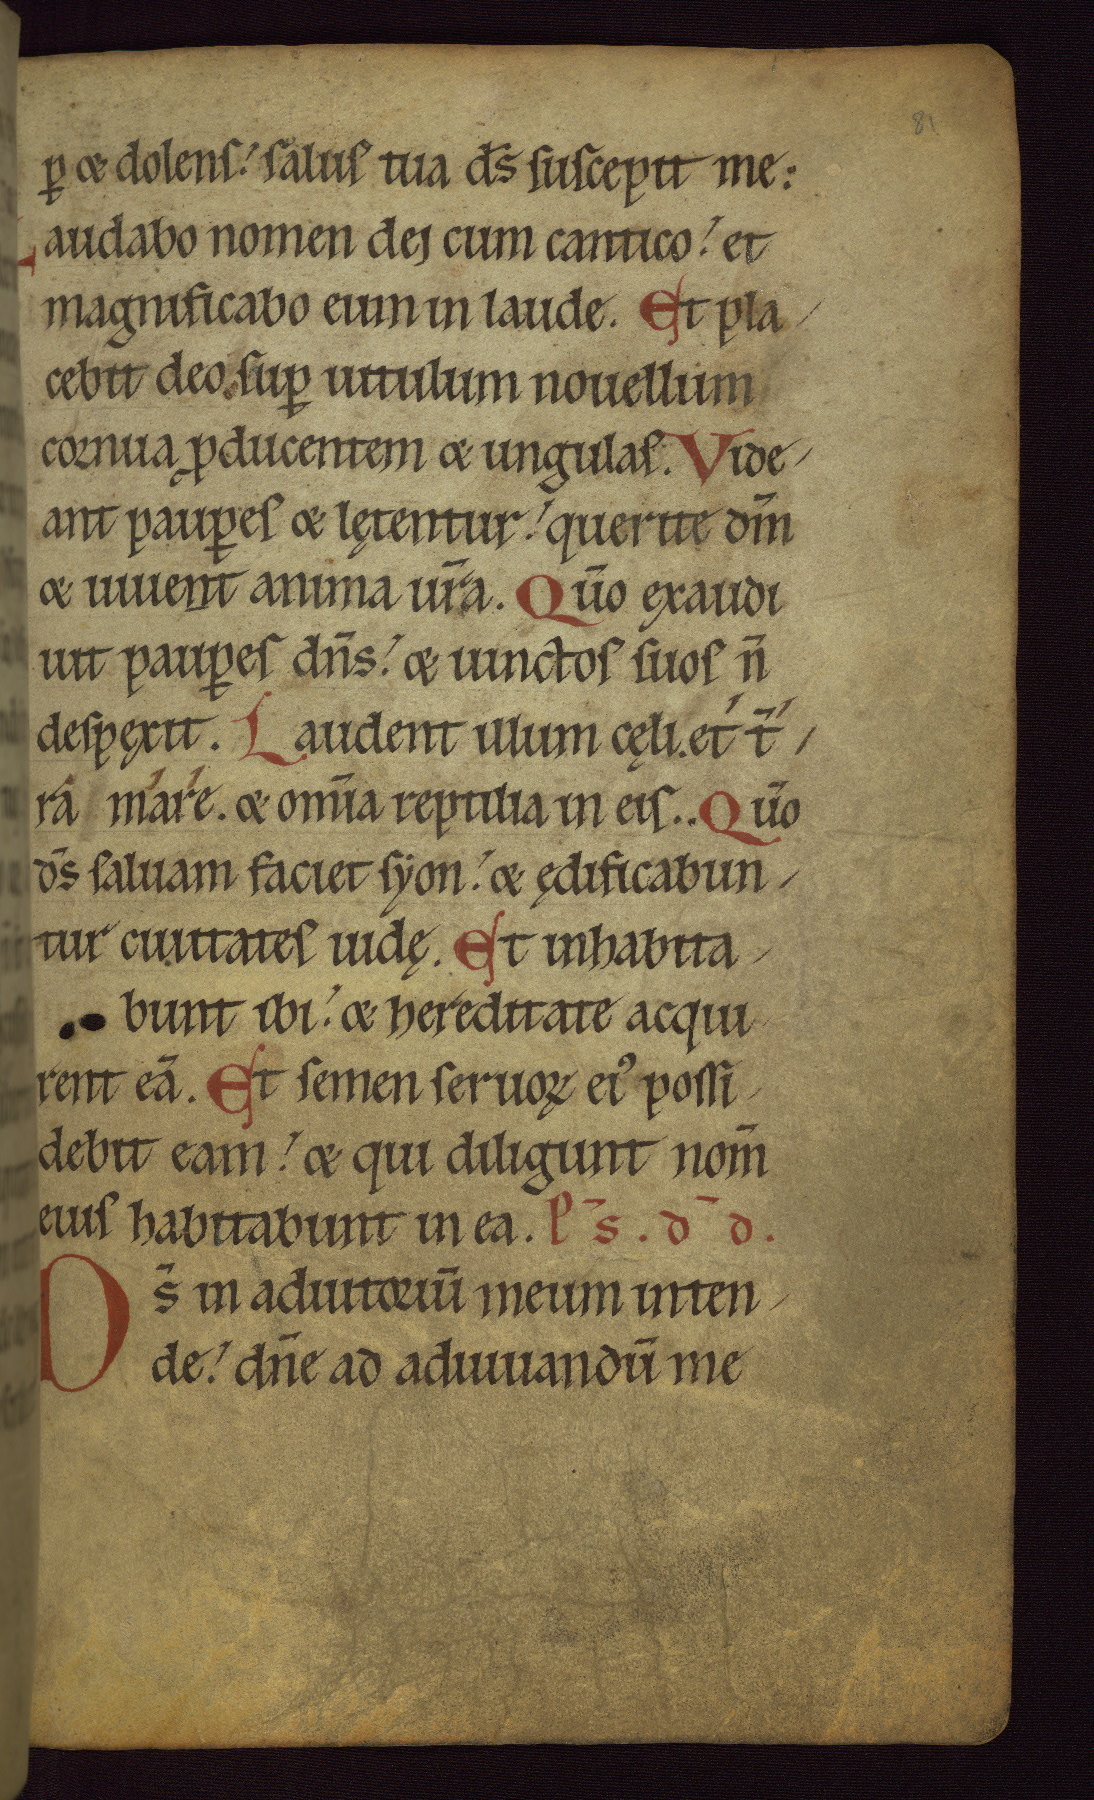 81
ꝑ & dolens! salus tua ds̄ suscepit me:
Laudabo nomen dei cum cantico! et
magnificabo eum in laude. Et pla-
cebit deo suꝑ uitulum nouellum
cornua ꝓducentem & ungulas. Vide-
ant pauꝑes & lętentur! querite dm̄
& uiuent anima ur̄a. Qūo exaudi
uit pauꝑes dn̄s! & uinctos suos n̄
despęxit. Laudent illum cęli. et t̄-
rā mare. & om̄ia reptilia in eis.. Qūo
ds̄ saluam faciet syon! & ędificabun-
tur ciuitates iudę. Et inhabita-
bunt ibi! & hereditate acqui
rent eā. Et semen seruoꝝ eiꝰ possi-
debit eam! & qui diligunt nom̄
eius habitabunt in ea. Ps̄. d̄ d.
Ds̄ in adiutoriū meum inten-
de! dn̄e ad adiuuandū me